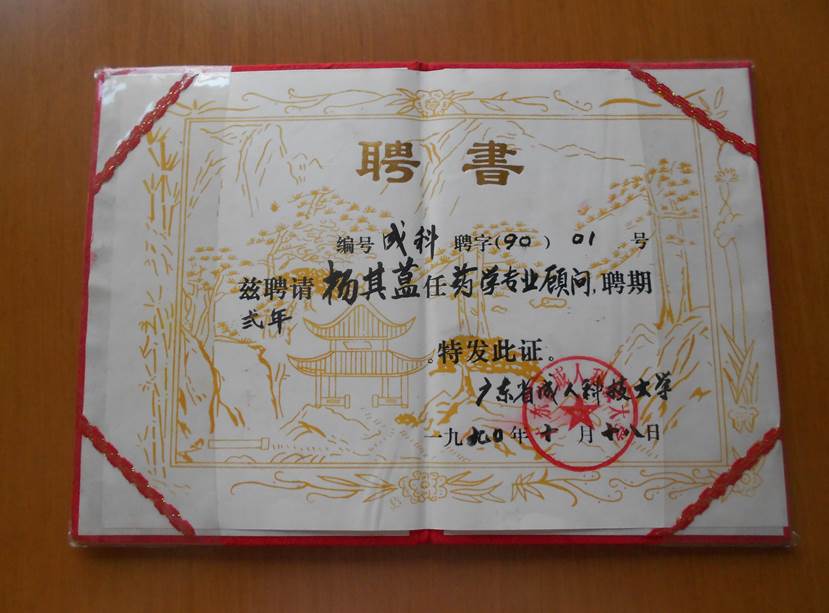 聘书
编号 成科 聘字(90) 01 号
兹聘请 杨其蕌 任 药学专业顾问,聘期
弍年
。特发此证。
广东省成人科技大学
一九九0年十月十八日